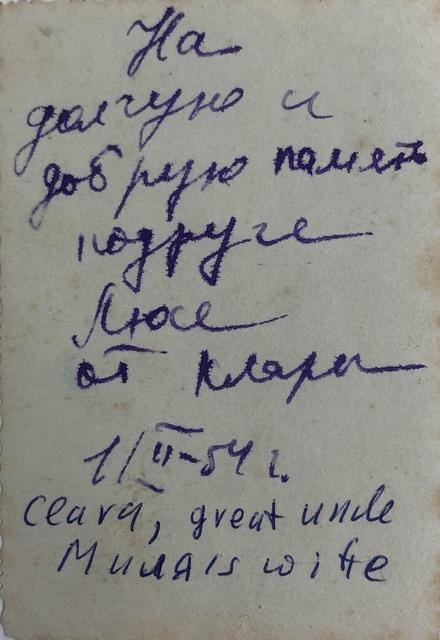 На
долгую и
добрую память
подруге
Люсе
от Клары
1/II-54 г.
Clara, great uncle
Миля's wife